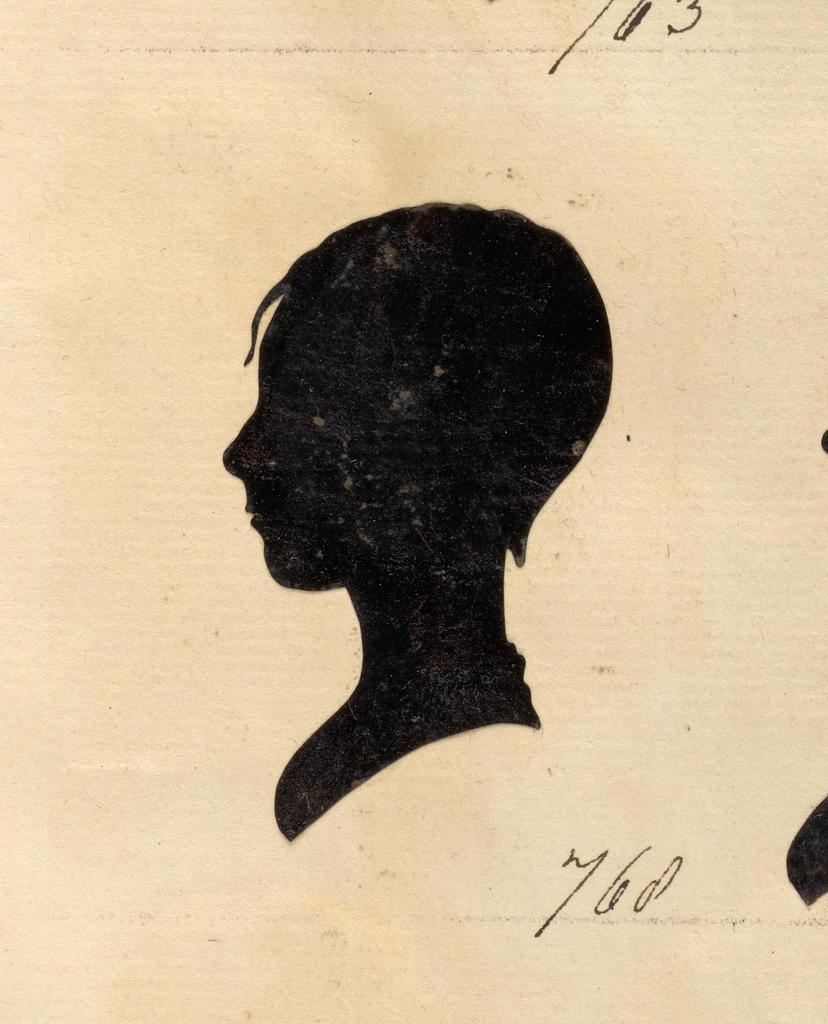 763
768